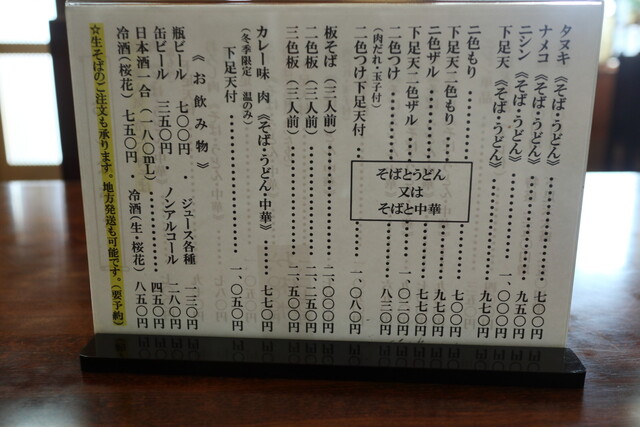 タヌキ《そば・うどん》‥‥‥七〇〇円
ナメコ《そば・うどん》‥‥‥七〇〇円
ニシン《そば・うどん》‥‥‥九五〇円
下足天《そば・うどん》‥‥‥一、〇〇〇円
二色もり‥‥‥七〇〇円
下足天二色もり‥‥‥九七〇円
二色ザル‥‥‥七七〇円
下足天二色ザル‥‥‥一、〇二〇円
二色つけ‥‥‥八三〇円
(肉だれ・玉子付)
二色つけ下足天付‥‥‥一、〇八〇円
そばとうどん
又は
そばと中華
板そば(三人前)‥‥‥二、〇〇〇円
二色板(三人前)‥‥‥二、二五〇円
三色板(三人前)‥‥‥二、五〇〇円
カレー味 肉《そば・うどん・中華》‥‥‥七七〇円
(冬季限定 温のみ)
下足天付‥‥‥一、〇五〇円
《お飲み物》
瓶ビール 七〇〇円・ジュース各種 一三〇円
缶ビール 三五〇円・ノンアルコール 二八〇円
日本酒一合(一八〇mL)‥‥‥四五〇円
冷酒(桜花)七五〇円・冷酒(生・桜花)八五〇円
☆生そばのご注文も承ります。地方発送も可能です。(要予約)